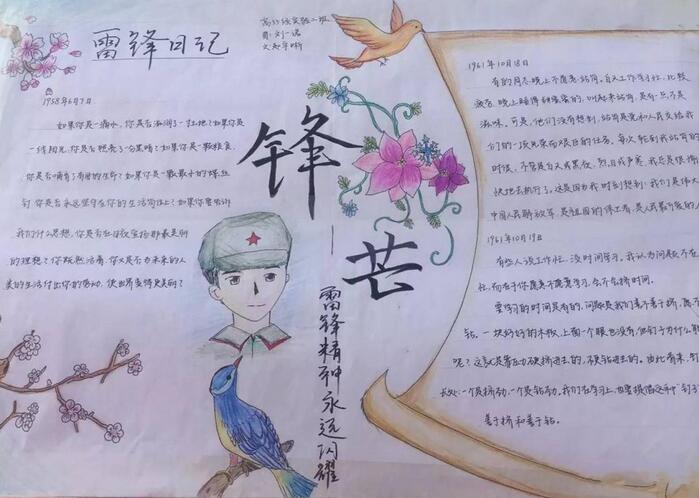 雷锋日记
1958年6月7日
如果你是一滴水，你是否滋润了一寸土地？如果你是
一线阳光，你是否照亮了一分黑暗？如果你是一颗粮食，
你是否哺育了有用的生命？如果你是一颗最小的螺丝
钉，你是否永远坚守在你的生活岗位上？如果你要告诉
我们什么思想，你是否在日夜宣扬那最美丽
的理想？你既然活着，你又是否为未来的人
类的生活付出你的劳动，使世界变得更美丽？
锋
芒
雷锋精神永远闪耀
1961年10月18日
有的同志晚上不愿意站岗。白天工作学习忙，比较
疲劳，晚上睡得甜蜜蜜的，叫起来站岗，是有一点不是
滋味。可是，他们没有想到，站岗是党和人民交给我
们的一项光荣而艰巨的任务。每次轮到我站岗的
时候，不管是白天或黑夜，烈日或严寒，我总是很愉
快地去执行了。这是因为我时刻想到：我们是伟大
中国人民解放军，是祖国的保卫者，是人民最可爱的人
1961年10月19日
有些人说工作忙，没时间学习。我认为问题不在
忙，而在于你愿意不愿意学习，会不会挤时间。
要学习的时间是有的，问题是我们善不善于挤，愿不
钻。一块好好的木板，上面一个眼也没有，但钉子为什么能
呢？这就是靠压力硬挤进去的，硬钻进去的。由此看来，钉
长处：一个是挤劲，一个是钻劲。我们在学习上，也要提倡这种"钉子
善于挤和善于钻。